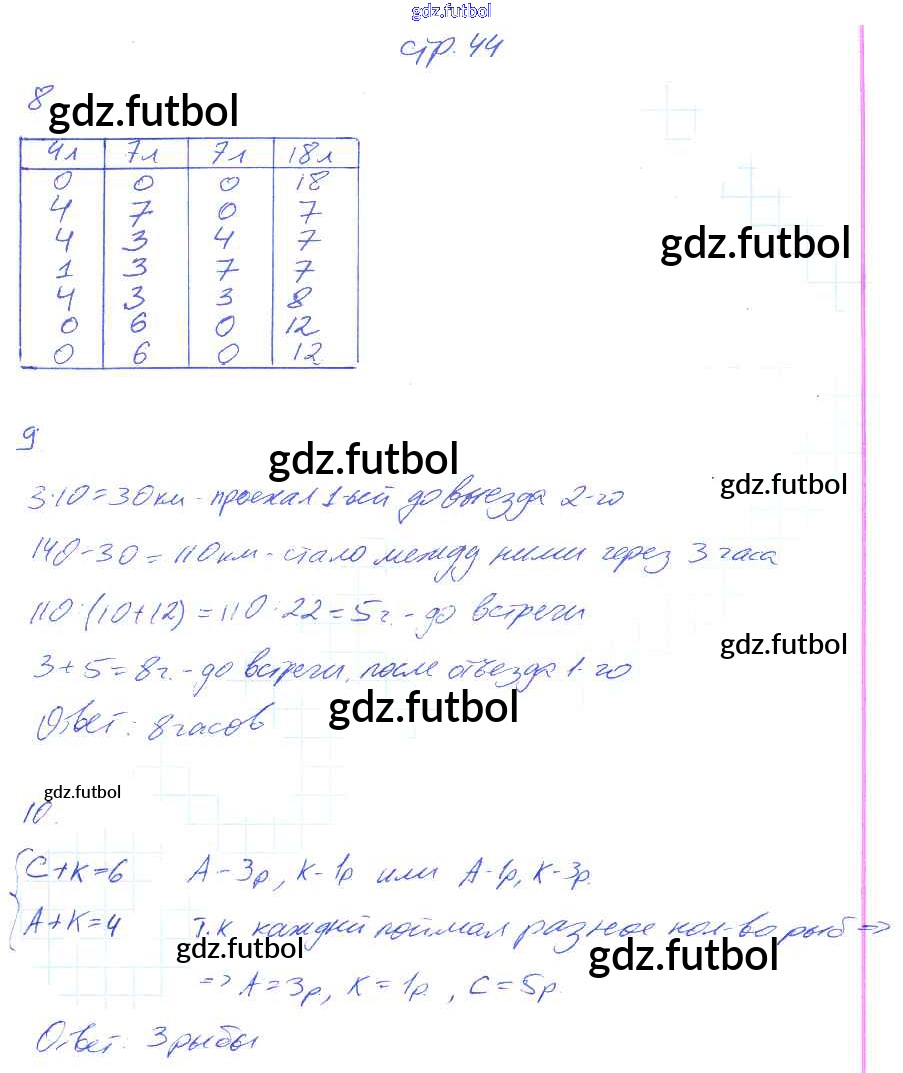 gdz.futbol
стр. 44
8
gdz.futbol
4л 7л 7л 18л
0 0 0 18
4 7 0 7
gdz.futbol
4 3 4 7
1 3 7 7
4 3 3 8
0 6 0 12
0 6 0 12
9
gdz.futbol
gdz.futbol
3·10=30км - проехал 1-ый до выезда 2-го
140-30=110км - стало между ними через 3 часа
110:(10+12)=110:22=5ч. - до встречи
gdz.futbol
3+5=8ч. - до встречи, после отъезда 1-го
gdz.futbol
Ответ: 8 часов
gdz.futbol
10.
С+К=6 А-3р, К-1р или А-1р, К-3р.
А+К=4 т.к. каждый поймал разное кол-во рыб =>
gdz.futbol
gdz.futbol
=> А=3р, К=1р., С=5р.
Ответ: 3 рыбы